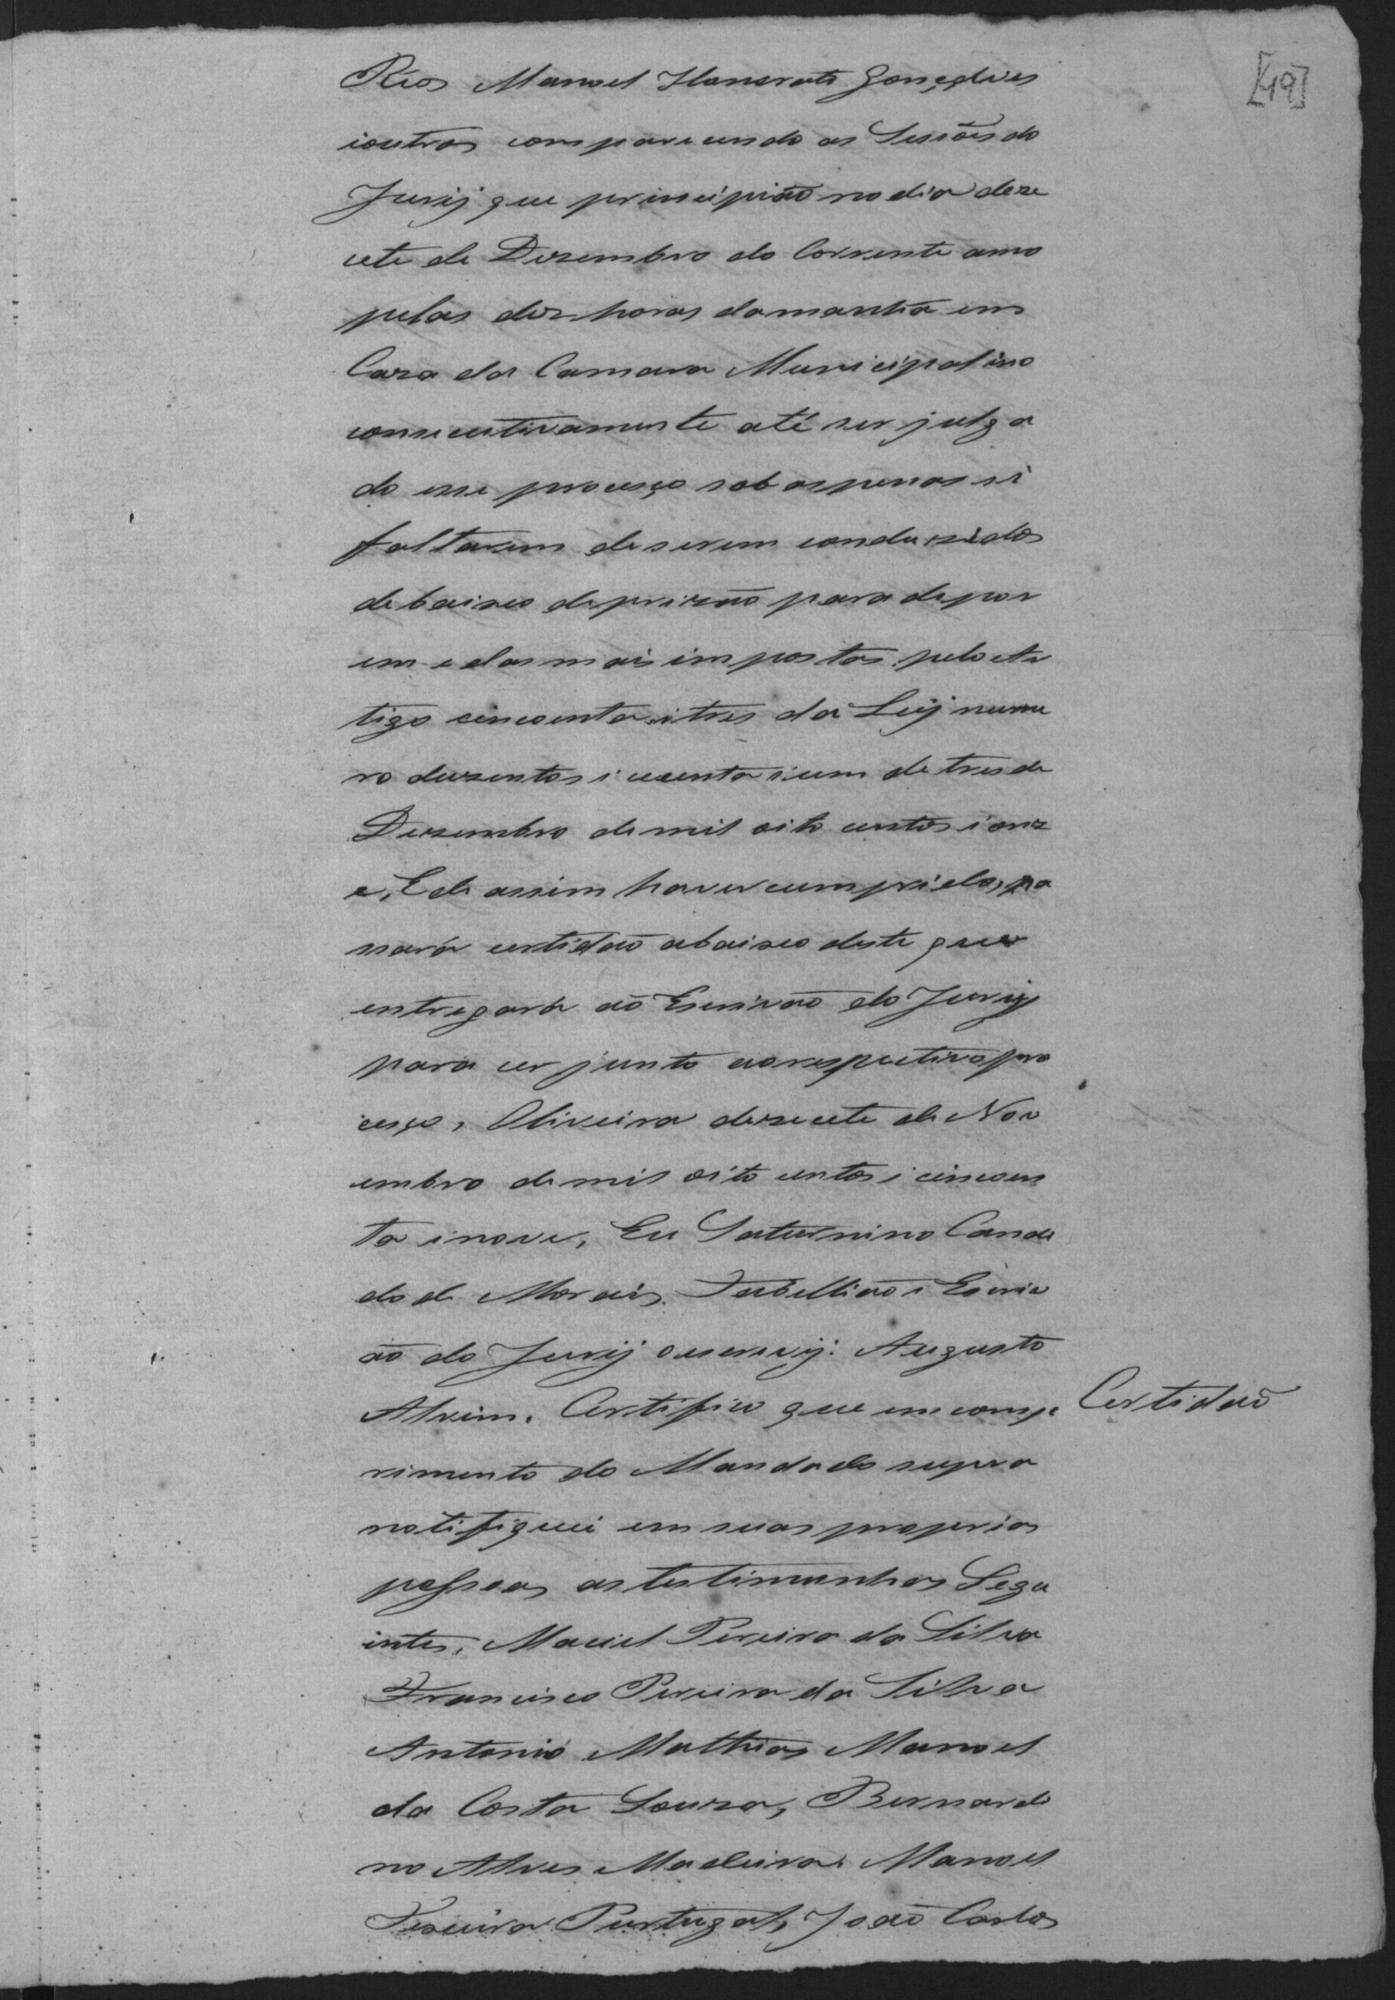 [49]
Réos Manoel Honorato Gonçalves
ioutros comparecendo as Sessões do
Jurij que principião no dia deze
cete de Dezembro do Corrente anno
pelas dez horas damanhã em
Caza da Camara Municipal ino
consecutivamente até ser julga
do esse proceço sob as penas si
faltarem de serem conduzidos
debaixo deprizão para depor
em e das mais impostas pelo Ar
tigo cincoenta itres da Leij nume
ro duzentos i cecenta ium de tres de
Dezembro de mil oito centos i onz
e, E de assim haver cumprido, pa
sará certidão abaixo deste que
entregará ao Escrivão do Jurij
para cer junto ao respectivo pro
ceço, Oliveira dezecete de Nov
embro de mil oito centos i cincoen
ta inove, Eu Saturnino Candi
do de Morais Tabellião i Escriv
ão do Jurij o escrevij. Augusto
Alvim. Certifico que em comp
Certidão
rimento do Mandado supra
notifiquei em suas proprias
pessoas as testimunhas Segu
intes, Maciel Pereira da Silva
Francisco Pereira da Silva
Antonio Mathias Manoel
da Costa Souza, Bernardi
no Alves Madeira Manoel
Teixeira Purtugal, João Carlos